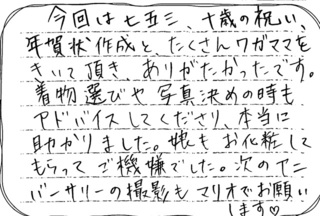 今回は七五三、十歳の祝い、
年賀状作成と、たくさんワガママを
きいて頂き、ありがたかったです。
着物選びや写真決めの時も
アドバイスしてくださり、本当に
助かりました。娘もお化粧して
もらってご機嫌でした。次のアニ
バーサリーの撮影もマリオでお願い
します♡